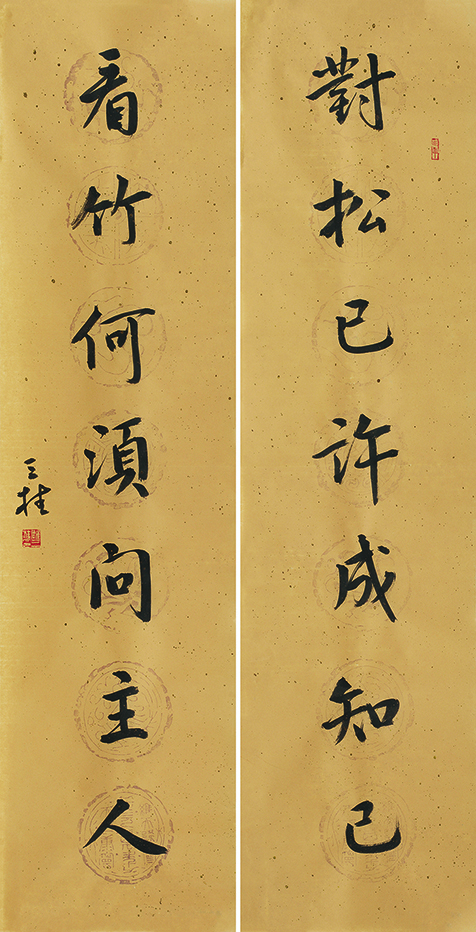 對松已許成知己
看竹何須問主人